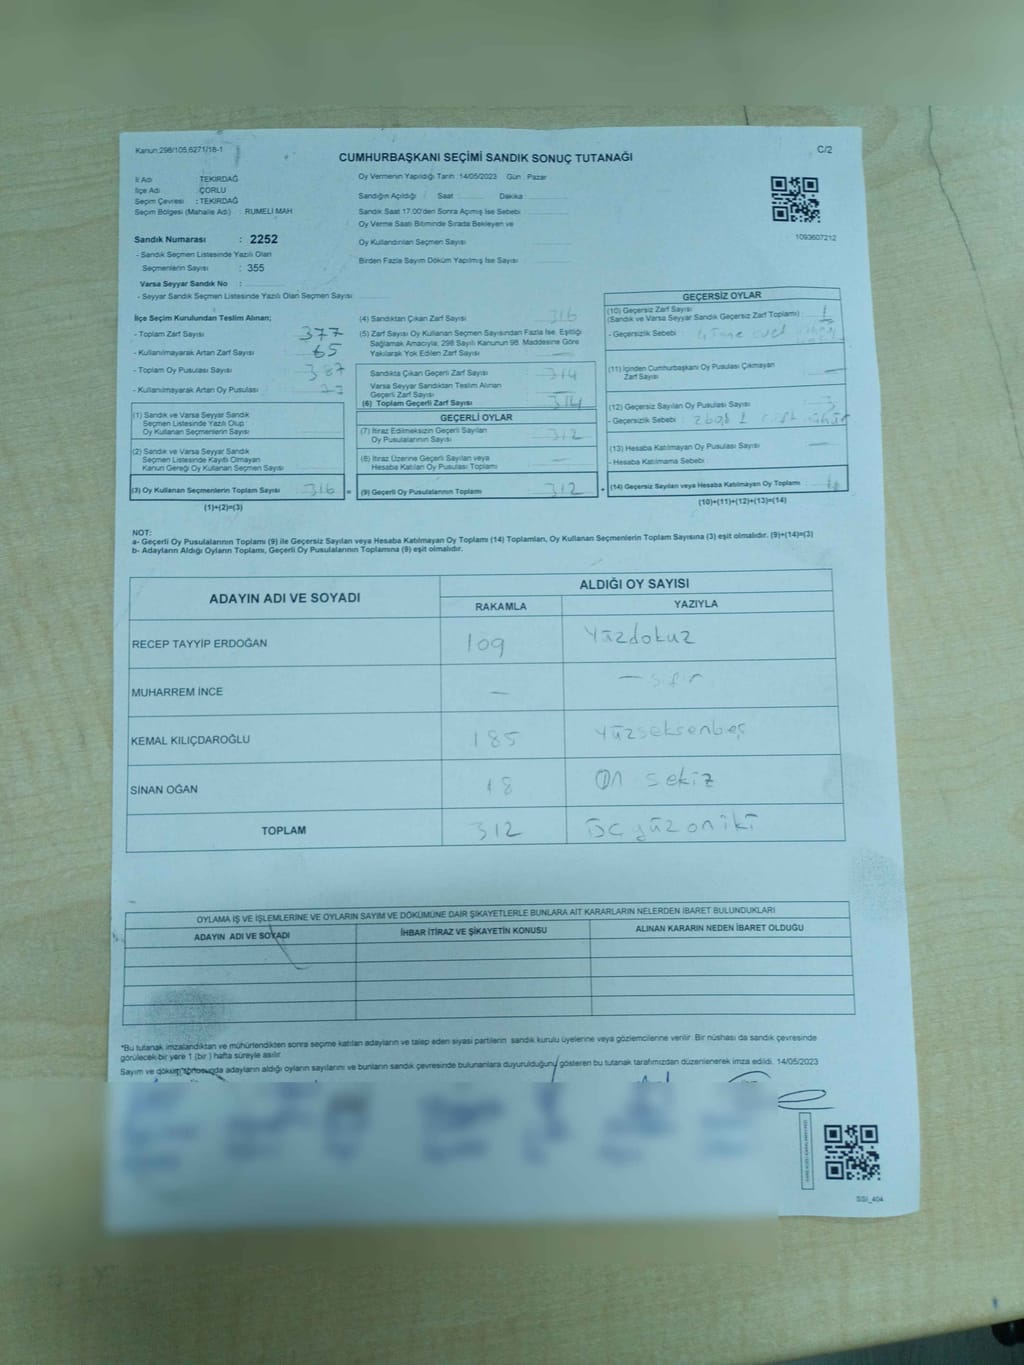 Kanun:298/105,6271/18-1
C/2
CUMHURBAŞKANI SEÇİMİ SANDIK SONUÇ TUTANAĞI
İl Adı : TEKİRDAĞ
İlçe Adı : ÇORLU
Seçim Çevresi : TEKİRDAĞ
Seçim Bölgesi (Mahalle Adı) : RUMELİ MAH
Sandık Numarası : 2252
- Sandık Seçmen Listesinde Yazılı Olan
Seçmenlerin Sayısı : 355
Varsa Seyyar Sandık No :
- Seyyar Sandık Seçmen Listesinde Yazılı Olan Seçmen Sayısı:
Oy Vermenin Yapıldığı Tarih : 14/05/2023 Gün : Pazar
Sandığın Açıldığı / Saat : Dakika :
Sandık Saat 17.00'den Sonra Açılmış İse Sebebi :
Oy Verme Saati Bitiminde Sırada Bekleyen ve
Oy Kullandırılan Seçmen Sayısı
Birden Fazla Sayım Döküm Yapılmış İse Sayısı :
1093607212
İlçe Seçim Kurulundan Teslim Alınan;
- Toplam Zarf Sayısı 377
- Kullanılmayarak Artan Zarf Sayısı 65
- Toplam Oy Pusulası Sayısı 387
- Kullanılmayarak Artan Oy Pusulası
(1) Sandık ve Varsa Seyyar Sandık
Seçmen Listesinde Yazılı Olup
Oy Kullanan Seçmenlerin Sayısı
(2) Sandık ve Varsa Seyyar Sandık
Seçmen Listesinde Kayıtlı Olmayan
Kanun Gereği Oy Kullanan Seçmen Sayısı
(3) Oy Kullanan Seçmenlerin Toplam Sayısı 316 =
(1)+(2)=(3)
(4) Sandıktan Çıkan Zarf Sayısı 316
(5) Zarf Sayısı Oy Kullanan Seçmen Sayısından Fazla İse, Eşitliği
Sağlamak Amacıyla, 298 Sayılı Kanunun 98. Maddesine Göre
Yakılarak Yok Edilen Zarf Sayısı —
Sandıkta Çıkan Geçerli Zarf Sayısı 314
Varsa Seyyar Sandıktan Teslim Alınan
Geçerli Zarf Sayısı
(6) Toplam Geçerli Zarf Sayısı 314
GEÇERLİ OYLAR
(7) İtiraz Edilmeksizin Geçerli Sayılan
Oy Pusulalarının Sayısı 312
(8) İtiraz Üzerine Geçerli Sayılan veya
Hesaba Katılan Oy Pusulası Toplamı —
(9) Geçerli Oy Pusulalarının Toplamı 312 +
GEÇERSİZ OYLAR
(10) Geçersiz Zarf Sayısı
(Sandık ve Varsa Seyyar Sandık Geçersiz Zarf Toplamı) : 1
- Geçersizlik Sebebi :
(11) İçinden Cumhurbaşkanı Oy Pusulası Çıkmayan
Zarf Sayısı —
(12) Geçersiz Sayılan Oy Pusulası Sayısı 3
- Geçersizlik Sebebi :
(13) Hesaba Katılmayan Oy Pusulası Sayısı —
- Hesaba Katılmama Sebebi
(14) Geçersiz Sayılan veya Hesaba Katılmayan Oy Toplamı : 4
(10)+(11)+(12)+(13)=(14)
NOT:
a- Geçerli Oy Pusulalarının Toplamı (9) ile Geçersiz Sayılan veya Hesaba Katılmayan Oy Toplamı (14) Toplamları, Oy Kullanan Seçmenlerin Toplam Sayısına (3) eşit olmalıdır. (9)+(14)=(3)
b- Adayların Aldığı Oyların Toplamı, Geçerli Oy Pusulalarının Toplamına (9) eşit olmalıdır.
ADAYIN ADI VE SOYADI
ALDIĞI OY SAYISI
RAKAMLA YAZIYLA
RECEP TAYYİP ERDOĞAN 109 Yüzdokuz
MUHARREM İNCE — — sıfır
KEMAL KILIÇDAROĞLU 185 Yüzseksenbeş
SİNAN OĞAN 18 On sekiz
TOPLAM 312 üç yüz oniki
OYLAMA İŞ VE İŞLEMLERİNE VE OYLARIN SAYIM VE DÖKÜMÜNE DAİR ŞİKAYETLERLE BUNLARA AİT KARARLARIN NELERDEN İBARET BULUNDUKLARI
ADAYIN ADI VE SOYADI İHBAR İTİRAZ VE ŞİKAYETİN KONUSU ALINAN KARARIN NEDEN İBARET OLDUĞU
*Bu tutanak imzalandıktan ve mühürlendikten sonra seçime katılan adayların ve talep eden siyasi partilerin sandık kurulu üyelerine veya gözlemcilerine verilir. Bir nüshası da sandık çevresinde
görülecek bir yere 1 (bir) hafta süreyle asılır.
Sayım ve döküm sonucunda adayların aldığı oyların sayılarını ve bunların sandık çevresinde bulunanlara duyurulduğunu gösteren bu tutanak tarafımızdan düzenlenerek imza edildi. 14/05/2023
SSİ_404